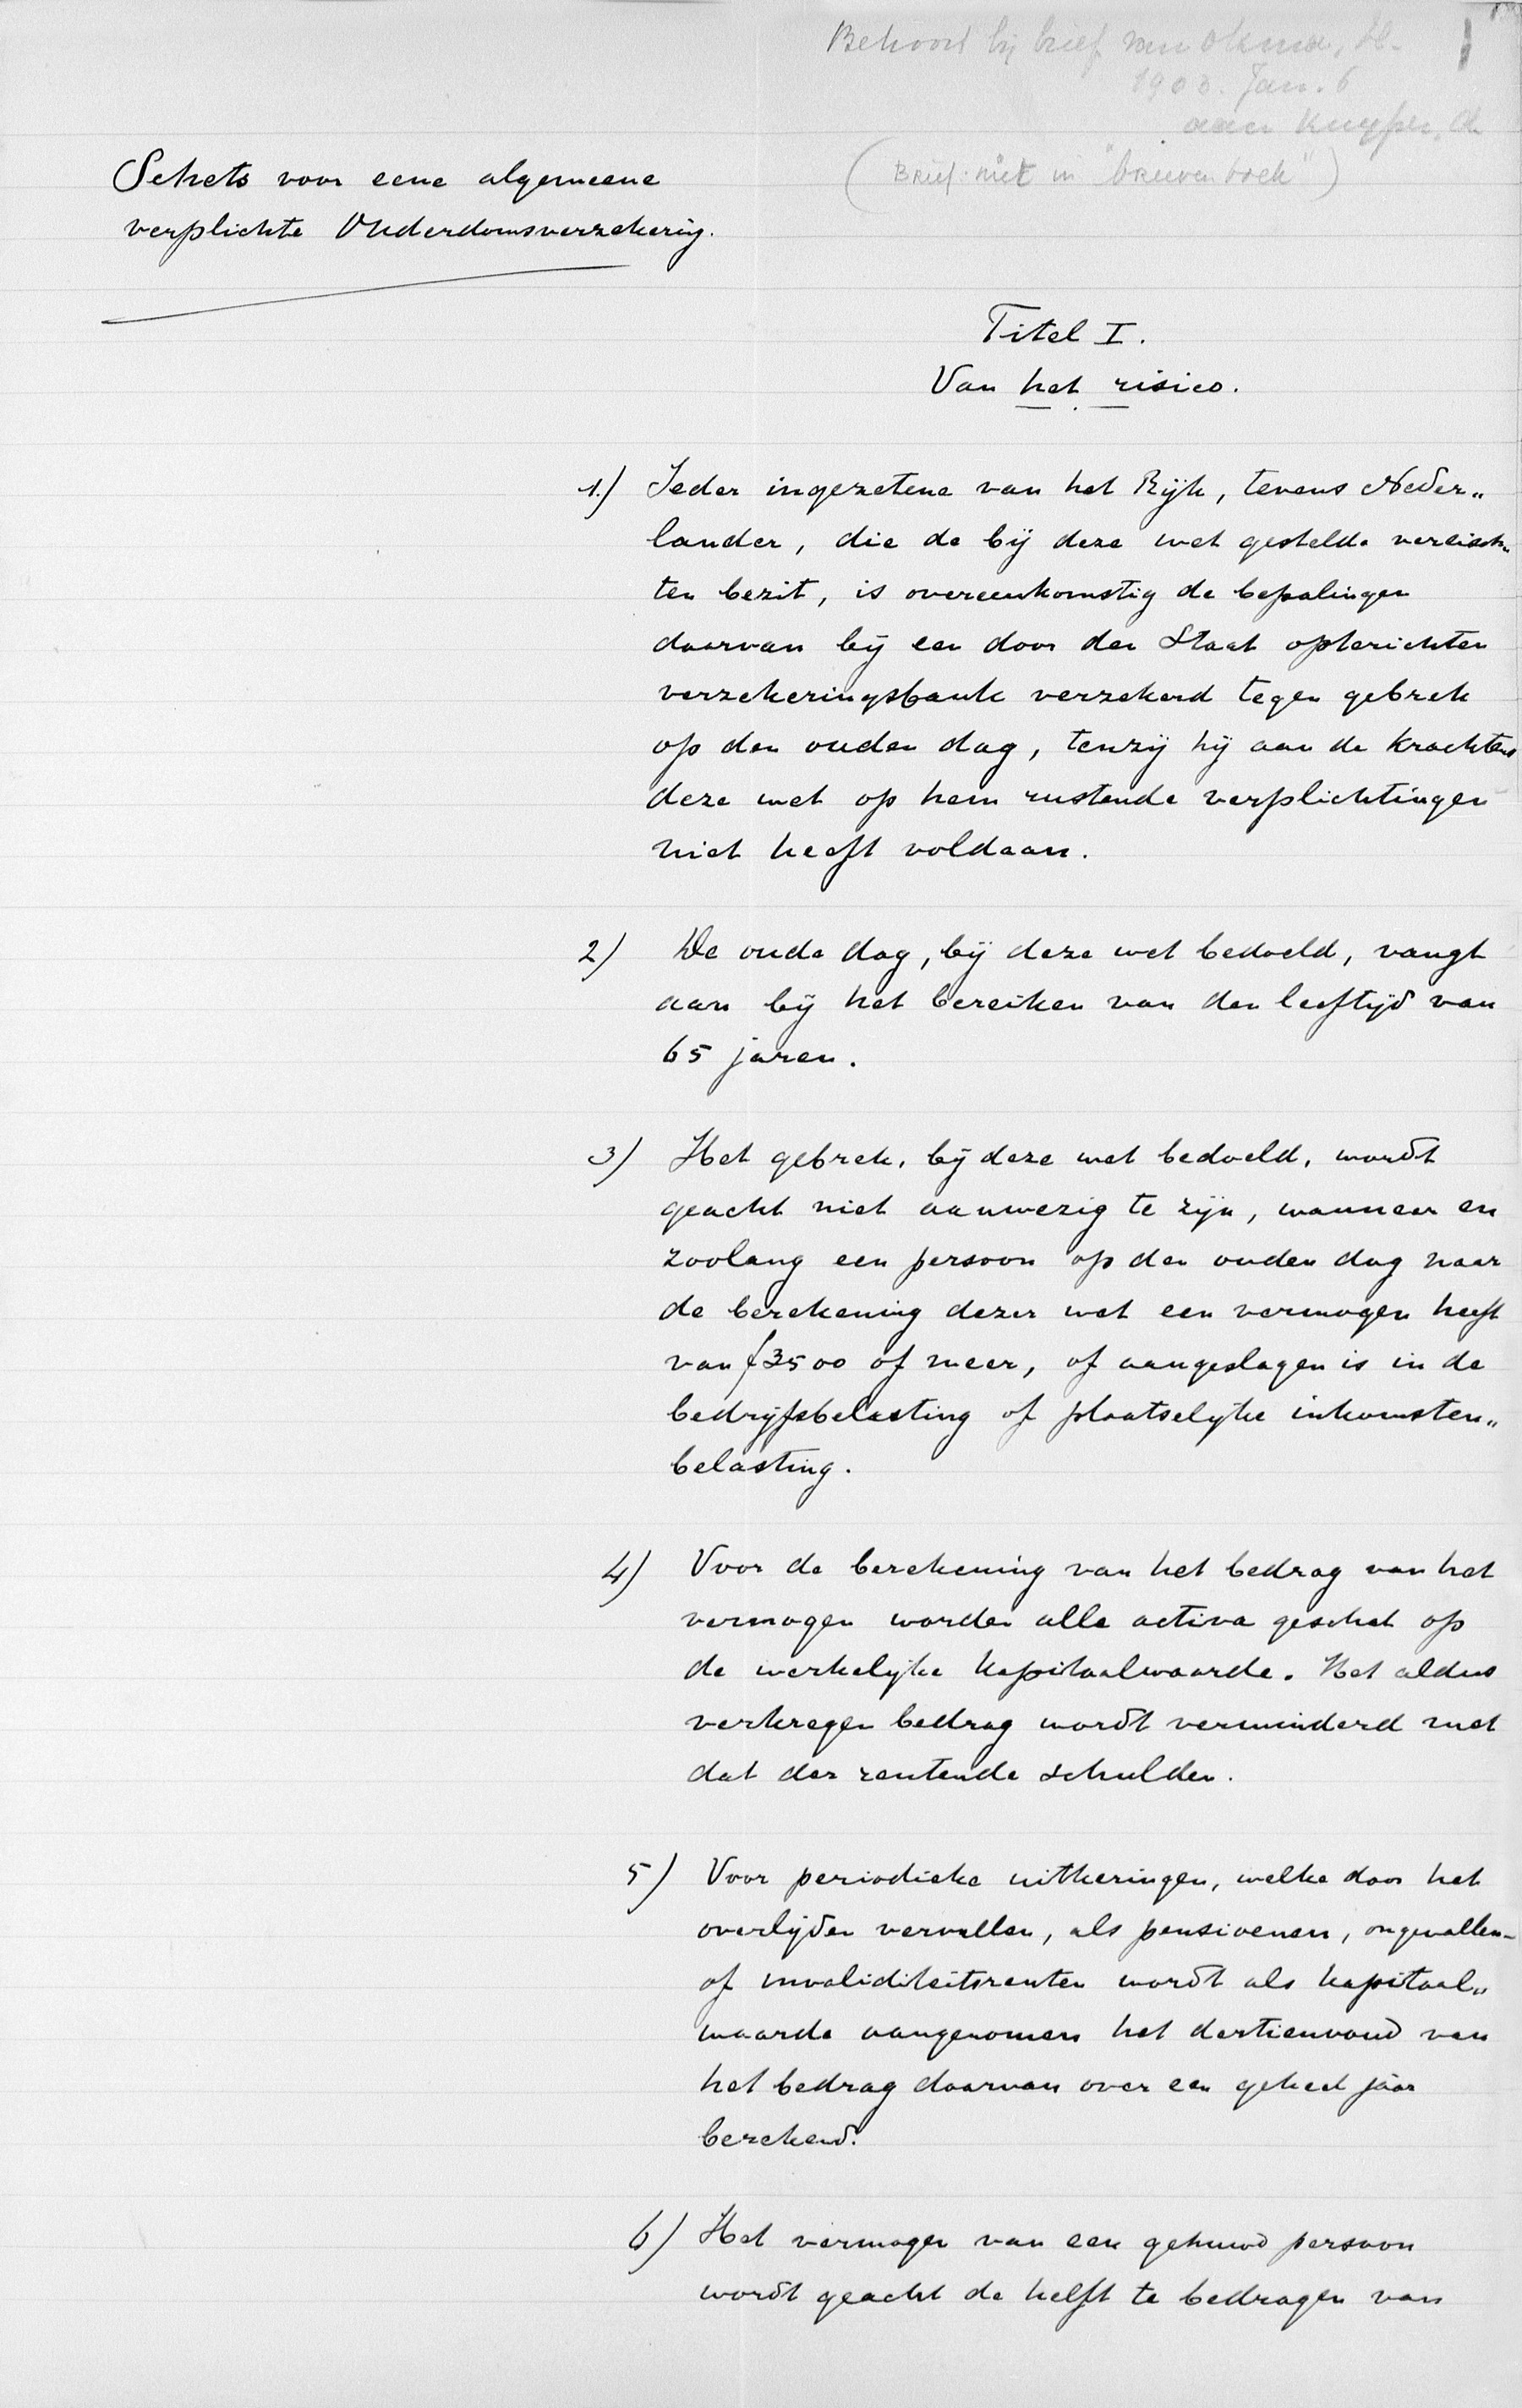 Behoort bij brief van Okma, H.
1903. Jan. 6
aan Kuyper, A
(Brief niet in "brievenboek")
Schets voor eene algemeene
verplichte Ouderdomsverzekering.
Titel I.
Van het risico.
1.) Ieder ingezetene van het Rijk, tevens Neder„
lander, die de bij deze wet gestelde vereisch„
ten bezit, is overeenkomstig de bepalingen
daarvan bij een door den Staat opterichten
verzekeringsbank verzekerd tegen gebrek
op den ouden dag, tenzij hij aan de krachtens
deze wet op hem rustende verplichtingen
niet heeft voldaan.
2) De oude dag, bij deze wet bedoeld, vangt
aan bij het bereiken van den leeftijd van
65 jaren.
3) Het gebrek, bij deze wet bedoeld, wordt
geacht niet aanwezig te zijn, wanneer en
zoolang een persoon op den ouden dag naar
de berekening dezer wet een vermogen heeft
van f 3500 of meer, of aangeslagen is in de
bedrijfsbelasting of plaatselijke inkomsten„
belasting.
4) Voor de berekening van het bedrag van het
vermogen worden alle activa geschat op
de werkelijke kapitaalwaarde. Het aldus
verkregen bedrag wordt verminderd met
dat der rentende schulden.
5) Voor periodieke uitkeringen, welke door het
overlijden vervallen, als pensioenen, ongevallen-
of invaliditeitsrenten wordt als kapitaal„
waarde aangenomen het dertienvoud van
het bedrag daarvan over een geheel jaar
berekend.
6) Het vermogen van een gehuwd persoon
wordt geacht de helft te bedragen van